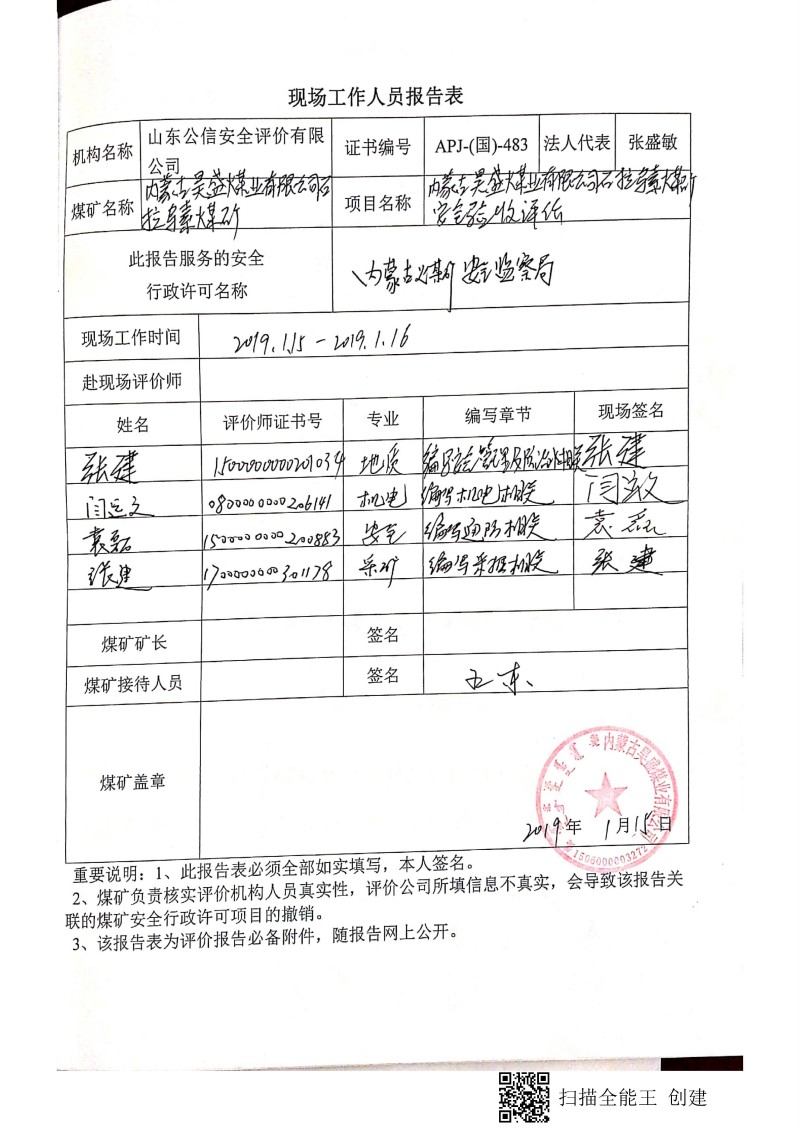 现场工作人员报告表
机构名称 山东公信安全评价有限公司 证书编号 APJ-(国)-483 法人代表 张盛敏
煤矿名称 内蒙古昊盛煤业有限公司石拉乌素煤矿 项目名称 内蒙古昊盛煤业有限公司石拉乌素煤矿安全验收评价
此报告服务的安全
行政许可名称 内蒙古煤矿安全监察局
现场工作时间 2019.1.15-2019.1.16
赴现场评价师
姓名 评价师证书号 专业 编写章节 现场签名
张建 1500000000201034 地质 编写安全管理及防治水相关 张建
闫运文 0800000000206141 机电 编写机电相关
袁磊 1500000000200883 安全 编写通防相关 袁磊
张建 1700000000301178 采矿 编写采掘相关 张建
煤矿矿长 签名
煤矿接待人员 签名 王东
煤矿盖章
内蒙古昊盛煤业有限公司
1506000003272
2019年 1月15日
重要说明：1、此报告表必须全部如实填写，本人签名。
2、煤矿负责核实评价机构人员真实性，评价公司所填信息不真实，会导致该报告关
联的煤矿安全行政许可项目的撤销。
3、该报告表为评价报告必备附件，随报告网上公开。
扫描全能王 创建